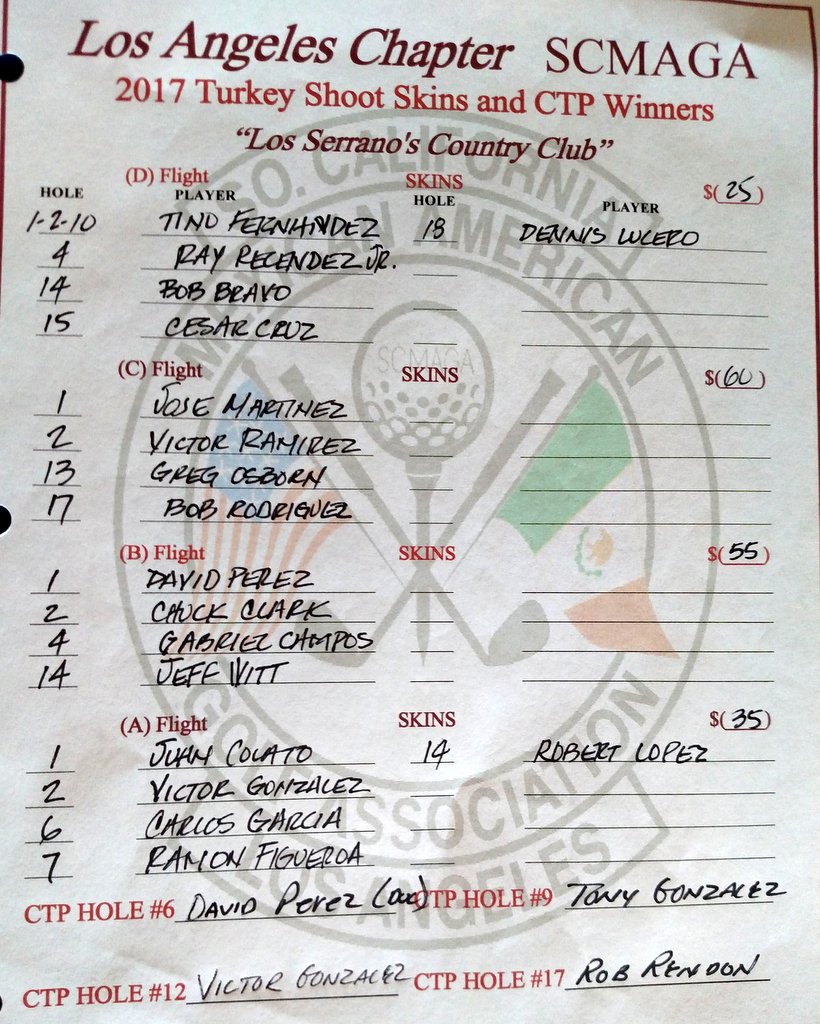 Los Angeles Chapter SCMAGA
2017 Turkey Shoot Skins and CTP Winners
"Los Serrano's Country Club"
(D) Flight SKINS $(25)
HOLE PLAYER HOLE PLAYER
1-2-10 TINO FERNANDEZ 18 DENNIS LUCERO
4 RAY RECENDEZ JR.
14 BOB BRAVO
15 CESAR CRUZ
(C) Flight SKINS $(60)
1 JOSE MARTINEZ
2 VICTOR RAMIREZ
13 GREG OSBORN
17 BOB RODRIGUEZ
(B) Flight SKINS $(55)
1 DAVID PEREZ
2 CHUCK CLARK
4 GABRIEL CAMPOS
14 JEFF WITT
(A) Flight SKINS $(35)
1 JUAN COLATO
14 ROBERT LOPEZ
2 VICTOR GONZALEZ
6 CARLOS GARCIA
7 RAMON FIGUEROA
CTP HOLE #6 DAVID PEREZ CTP HOLE #9 TONY GONZALEZ
CTP HOLE #12 VICTOR GONZALEZ CTP HOLE #17 ROB RENDON
SO. CALIFORNIA
MEXICAN AMERICAN
SCMAGA
GOLF ASSOCIATION
LOS ANGELES